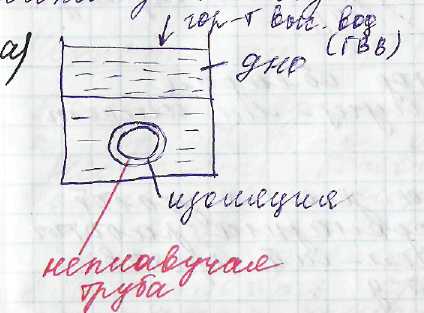 а)
гор-т выс. вод
(ГВВ)
дно
изоляция
неплавучая
труба